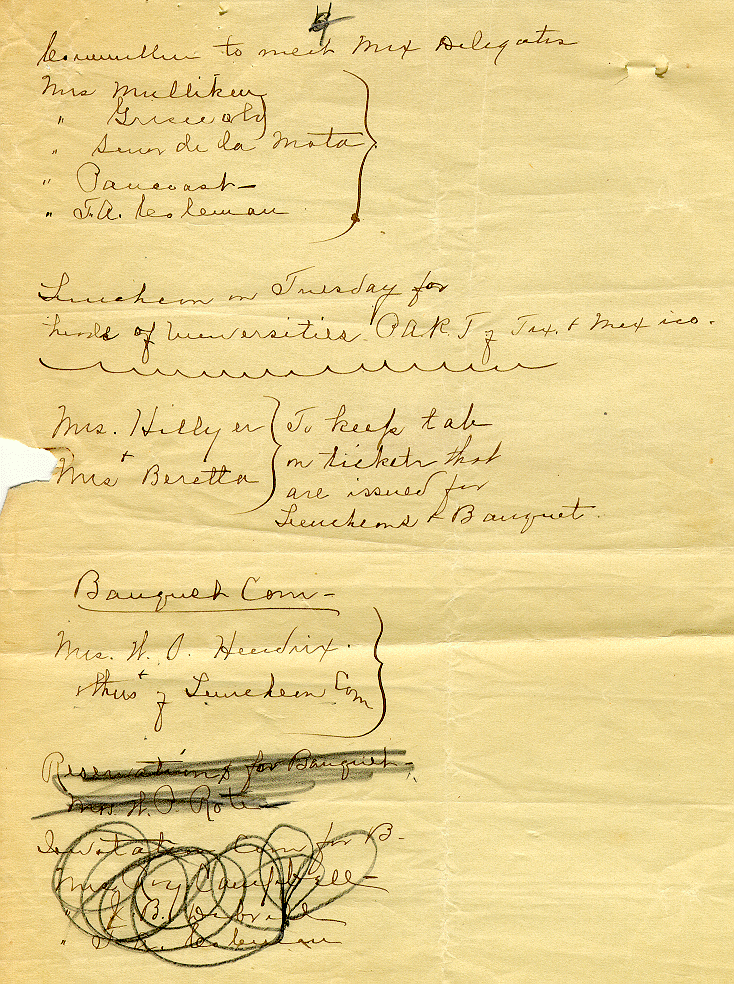 4
Committee to meet Mex Delegates
Mrs Milliken
" Griswold
" Senor de la Mota
" Pancoast -
" T.A. Coleman
Luncheon on Tuesday for
heads of Universities P.A.R.T of Tex. + Mexico.
Mrs. Hillyer
+
Mrs Beretta
To keep tab
on tickets that
are issued for
Luncheons + Banquet.
Banquet Com -
Mrs. W. P. Hendrix.
+
others of Luncheon Com
Reservations for Banquet -
Mrs. W. P. Rote
Invitation Com for B -
Mrs Guy Campbell -
" B.
" T. A. Coleman